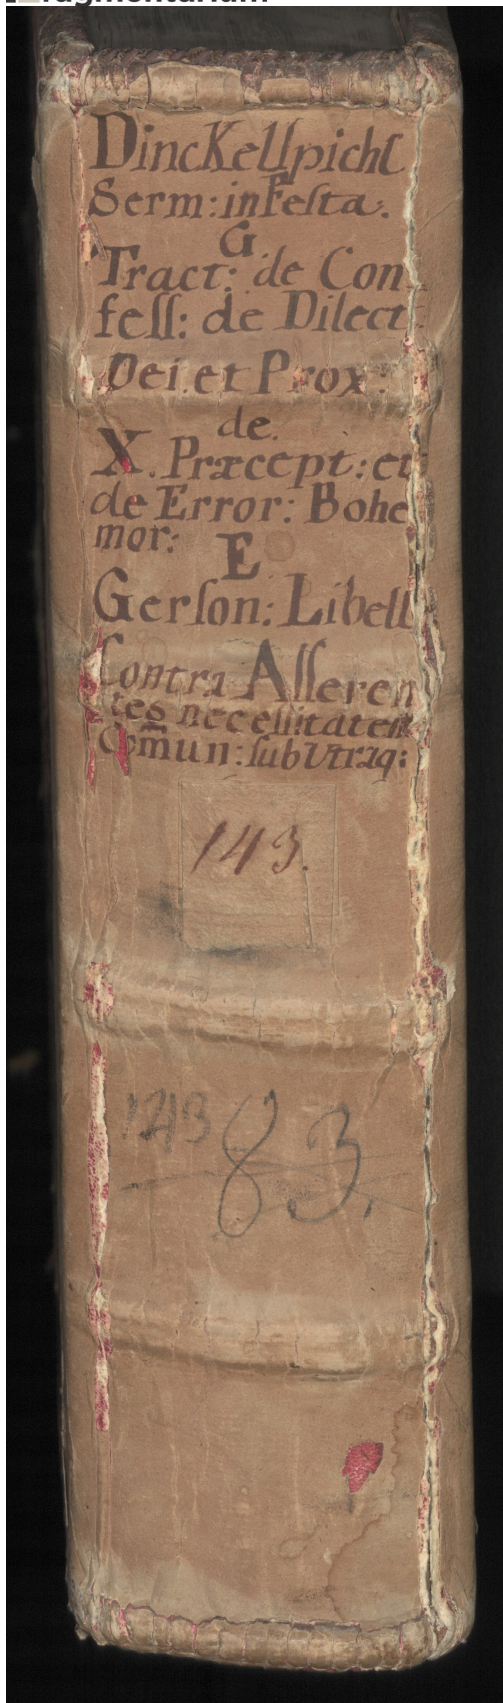 DincKelſpichl
Serm: in Feſta.
G
Tract: de Con
feſſ: de Dilect
Dei. et Prox:
de.
X. Præcept: et
de Error: Bohe
mor:
E
Gerſon: Libell
Contra Aſſeren
tes neceſſitatem
Com̃un: ſub Utraq:
143.
143
83.